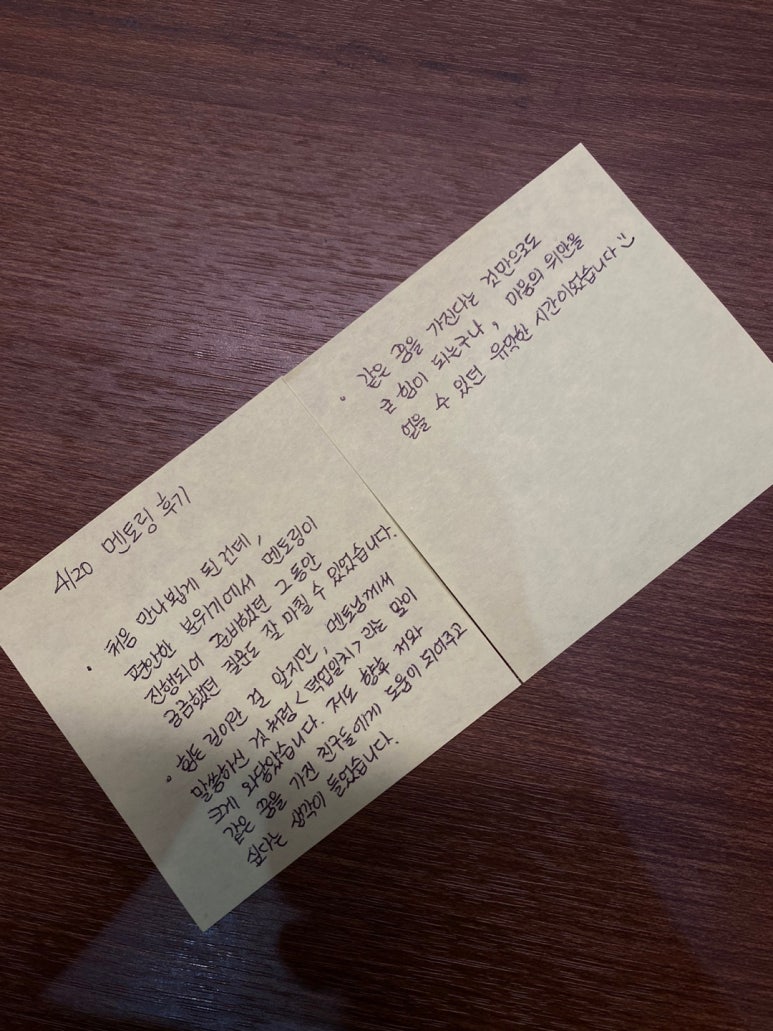 4/20 멘토링 후기
• 처음 만나뵙게 된건데,
편안한 분위기에서 멘토링이
진행되어 준비했던 그동안
궁금했던 질문도 잘 마칠 수 있었습니다.
• 힘든 길이란 걸 알지만, 멘토님께서
말씀하신 것처럼 <덕업일치> 라는 말이
크게 와닿았습니다. 저도 향후 저와
같은 꿈을 가진 친구들에게 도움이 되어주고
싶다는 생각이 들었습니다.
• 같은 꿈을 가진다는 것만으로도
큰 힘이 되는구나, 마음의 위안을
얻을 수 있던 유익한 시간이었습니다 :)